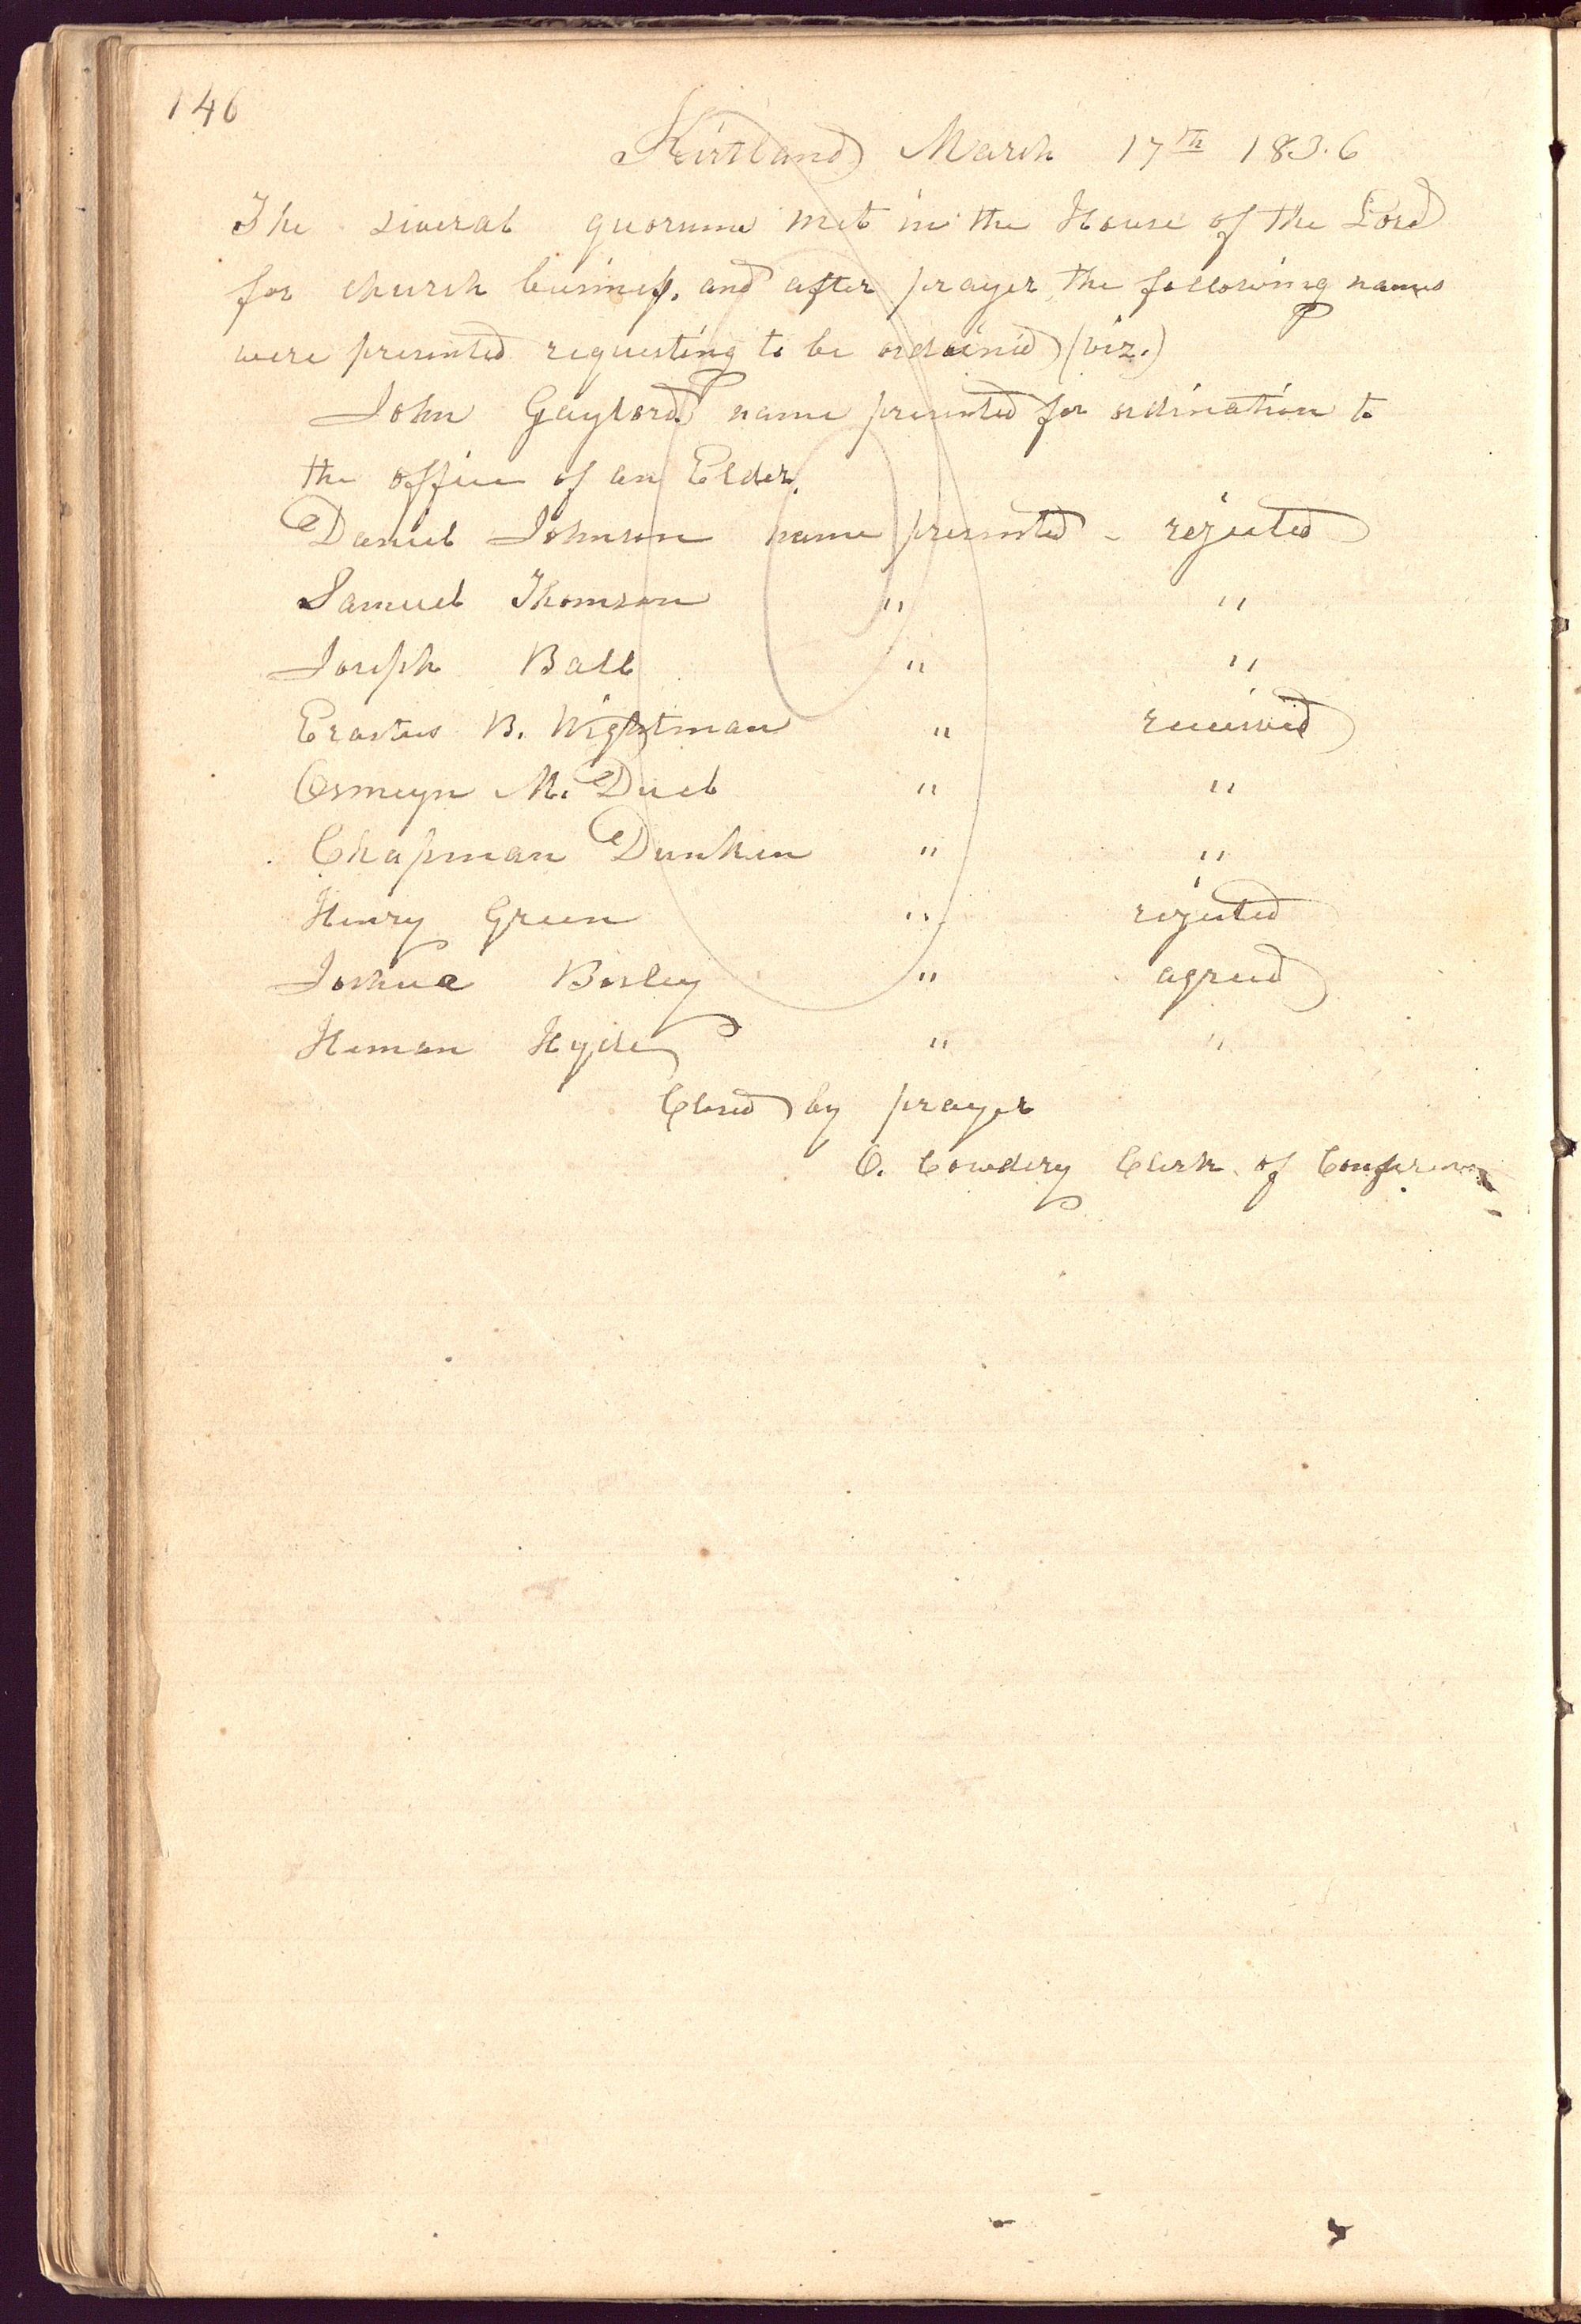 146
Kirtland March 17th 183.6
The several quorums met in the House of the Lord
for church business, and after prayer, the following names
were presented requesting to be ordained (viz.)
John Gaylord name presented for ordination to
the office of an Elder.
Daniel Johnson name presented - rejected
Samuel Thomson " "
Joseph Ball " "
Erastus B. Wightman " received
Osmyn M. Duel " "
Chapman Dunken " "
Henry Green " rejected
Joshua Bosley " agreed
Heman Hyde " "
Closed by prayer
O. Cowdery Clerk of Conference